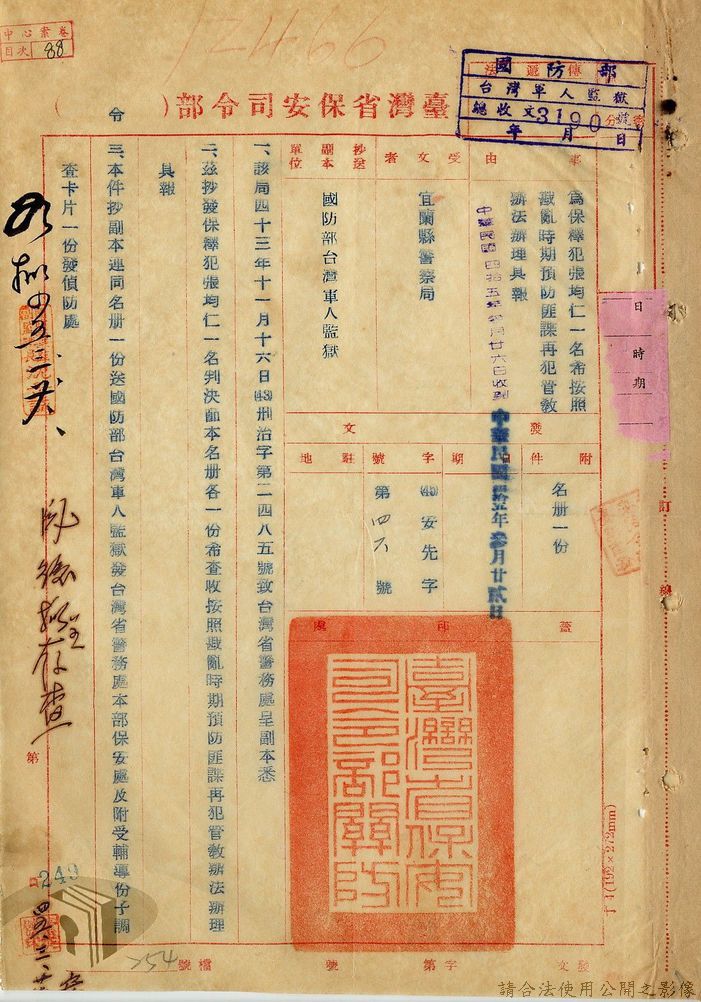 中心案卷
目次 88
12466
國防部
台灣軍人監獄
總收文3190號
年 月 日
臺灣省保安司令部( 令 )
事由
為保釋犯張均仁一名希按照
戡亂時期預防匪諜再犯管教
辦法辦理具報
受文者
宜蘭縣警察局
抄送副本單位
國防部台灣軍人監獄
附件
名册一份
日期
中華民國肆拾五年參月廿貳日
發文
字號
(45)安先字
第四六號
駐地
蓋印處
臺灣省保安司令部關防
一、該局四十三年十一月十六日(43)刑治字第二四八五號致台灣省警務處呈副本悉
二、茲抄發保釋犯張均仁一名判決節本名册各一份希查收按照戡亂時期預防匪諜再犯管教辦法辦理
具報
三、本件抄副本連同名册一份送國防部台灣軍人監獄發台灣省警務處本部保安處及附受輔導份子調
查卡片一份發偵防處
日
時期
訂
線
第
249
254
發文 字第 號
檔號
(192×272mm)
請合法使用公開之影像